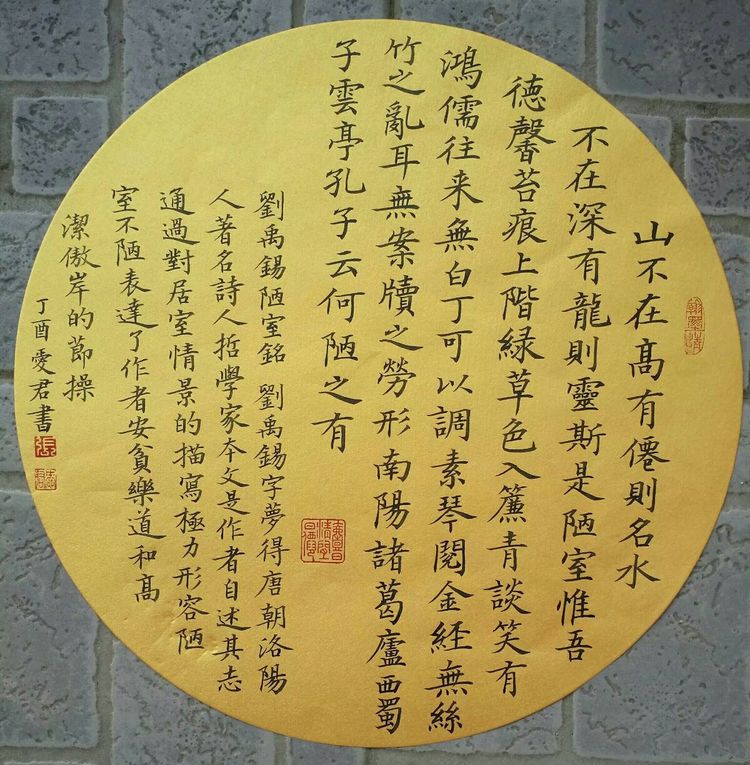 山不在高有僊則名水
不在深有龍則靈斯是陋室惟吾
德馨苔痕上階緑草色入簾青談笑有
鴻儒往来無白丁可以調素琴閱金経無絲
竹之亂耳無案牘之勞形南陽諸葛廬西蜀
子雲亭孔子云何陋之有
劉禹錫陋室銘 劉禹錫字夢得唐朝洛陽
人著名詩人哲學家本文是作者自述其志
通過對居室情景的描寫極力形容陋
室不陋表達了作者安貧樂道和高
潔傲岸的節操
丁酉愛君書
張